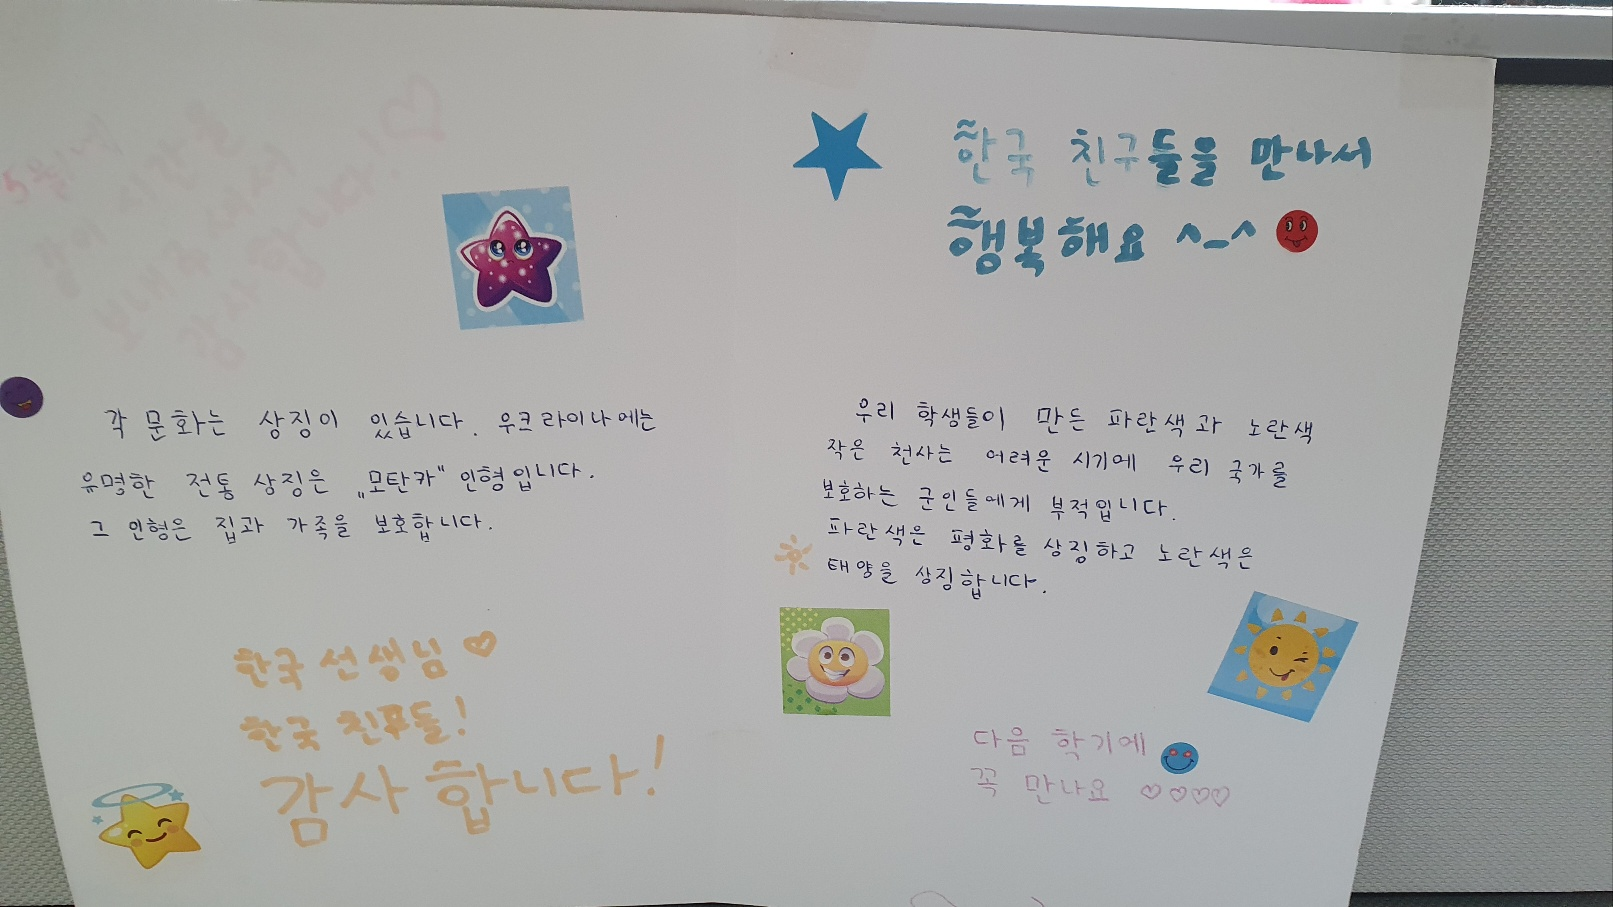 각 문화는 상징이 있습니다. 우크라이나에는
유명한 전통 상징은 „모탄카" 인형입니다.
그 인형은 집과 가족을 보호합니다.
한국 선생님 ♡
한국 친구들!
감사합니다!
한국 친구들을 만나서
행복해요 ^_^
우리 학생들이 만든 파란색과 노란색
작은 천사는 어려운 시기에 우리 국가를
보호하는 군인들에게 부적입니다.
파란색은 평화를 상징하고 노란색은
태양을 상징합니다.
다음 학기에
꼭 만나요 ♡♡♡♡